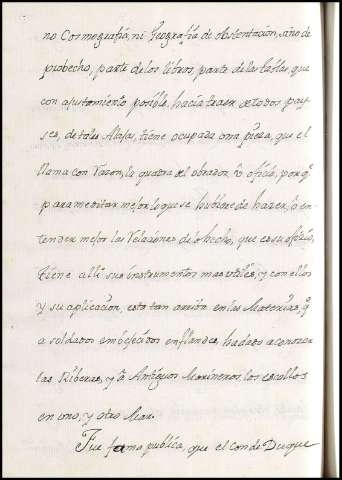 no Cosmografia, ni Geografia de Obstentacion, sino de
probecho, parte de los libros, parte de las tablas, que
con ajustamiento posible, hacia traer de todos pay-
ses, de tales Alajas, tiene ocupada una pieza, que el
llama con razon, la quadra el obrador u oficio, porq.e
para meditar mejor lo que se hubiere de hazer, o en-
tender mejor las Relaciones de lo hecho, que es su oficio,
tiene alli sus instrumentos mas utiles, y con ellos
y su aplicacion, esta tan arriba en las Materias, q.e
a soldados embejecidos en flandes, ha dado a conozer
las Riberas, y a Antiguos Marineros, los escollos
en uno, y otro Mar.
Fue fama publica, que el Conde Duque